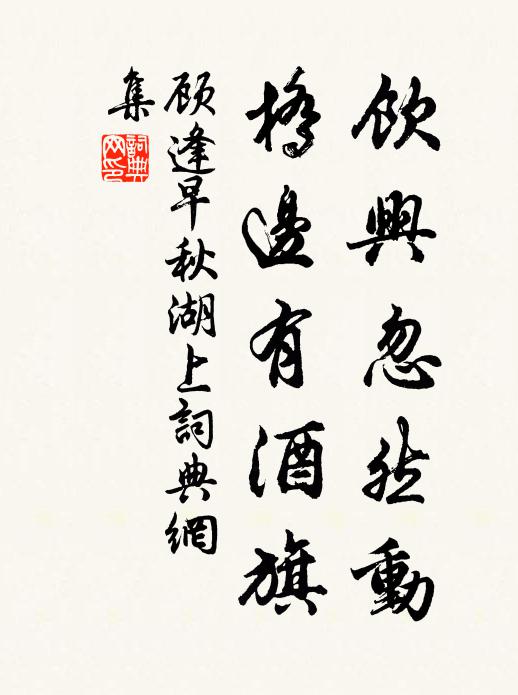 飲興忽然動
橋邊有酒旗
顾逢早秋湖上詞典網
集
詞典
网印